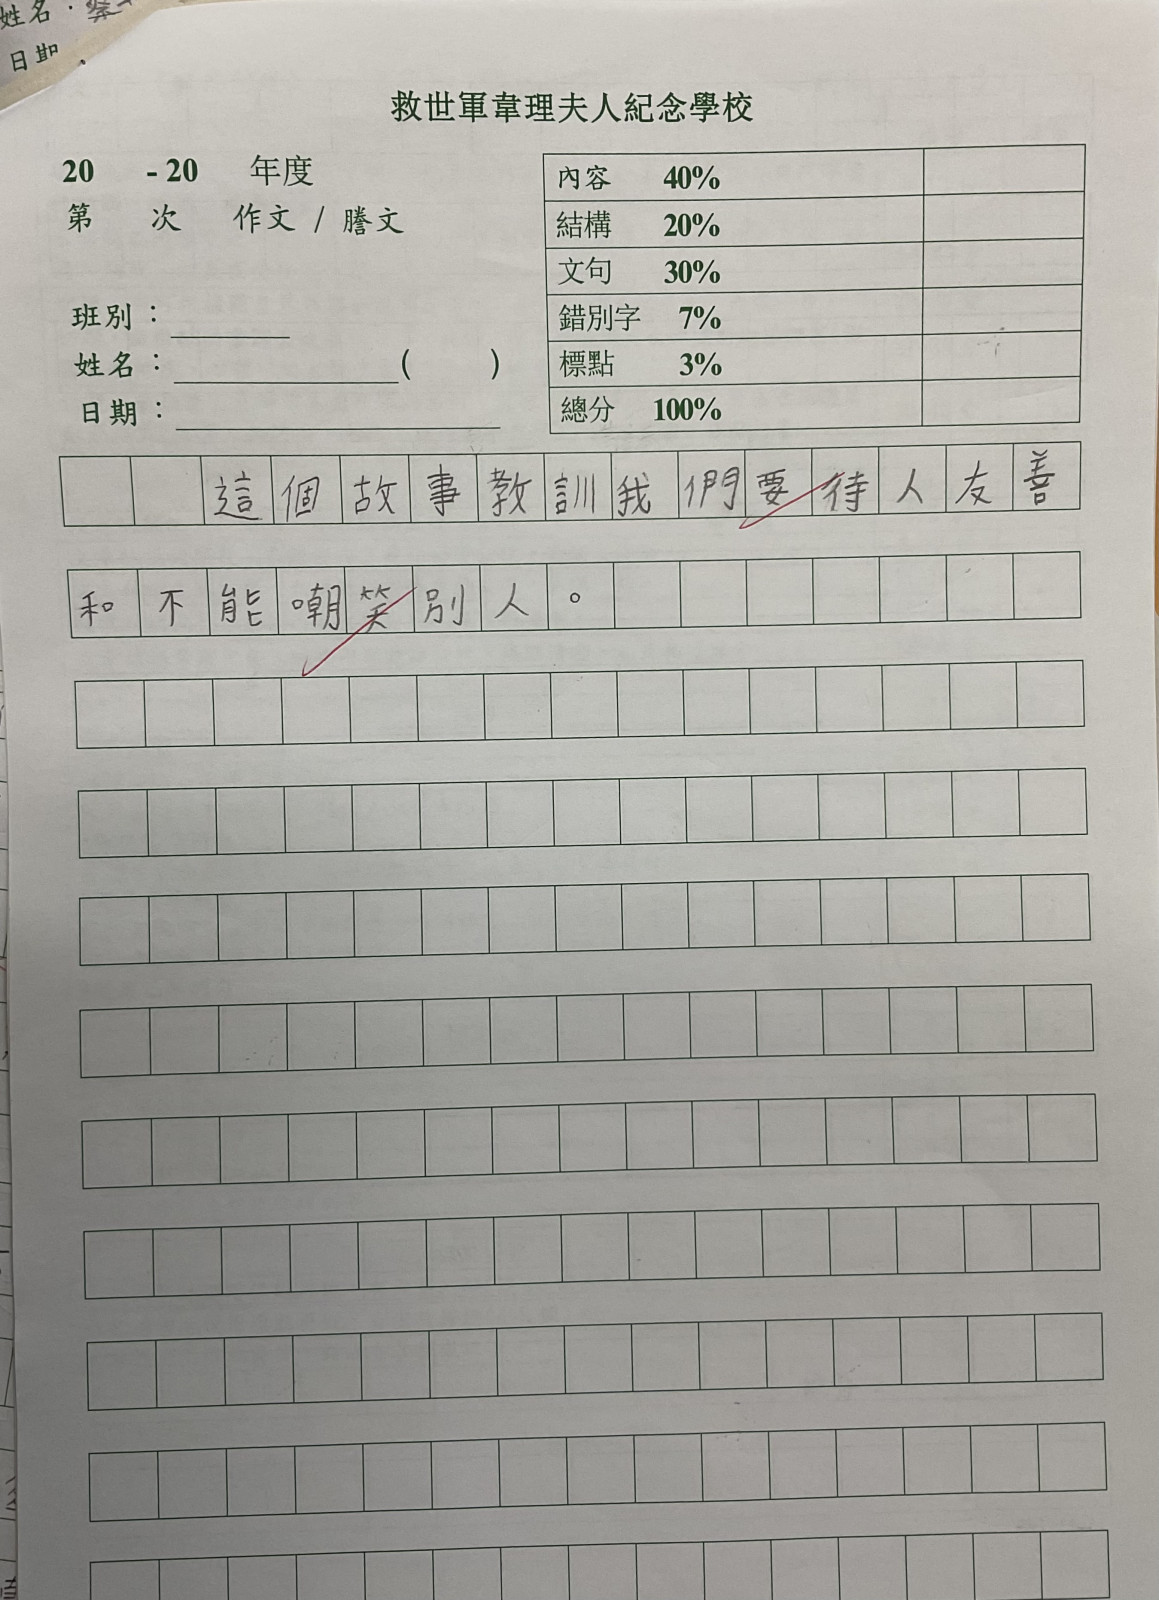 姓名：
日期
救世軍韋理夫人紀念學校
20 - 20 年度
第 次 作文 / 謄文
班別：
姓名： ( )
日期：
內容 40%
結構 20%
文句 30%
錯別字 7%
標點 3%
總分 100%
這個故事教訓我們要待人友善
和不能嘲笑別人。